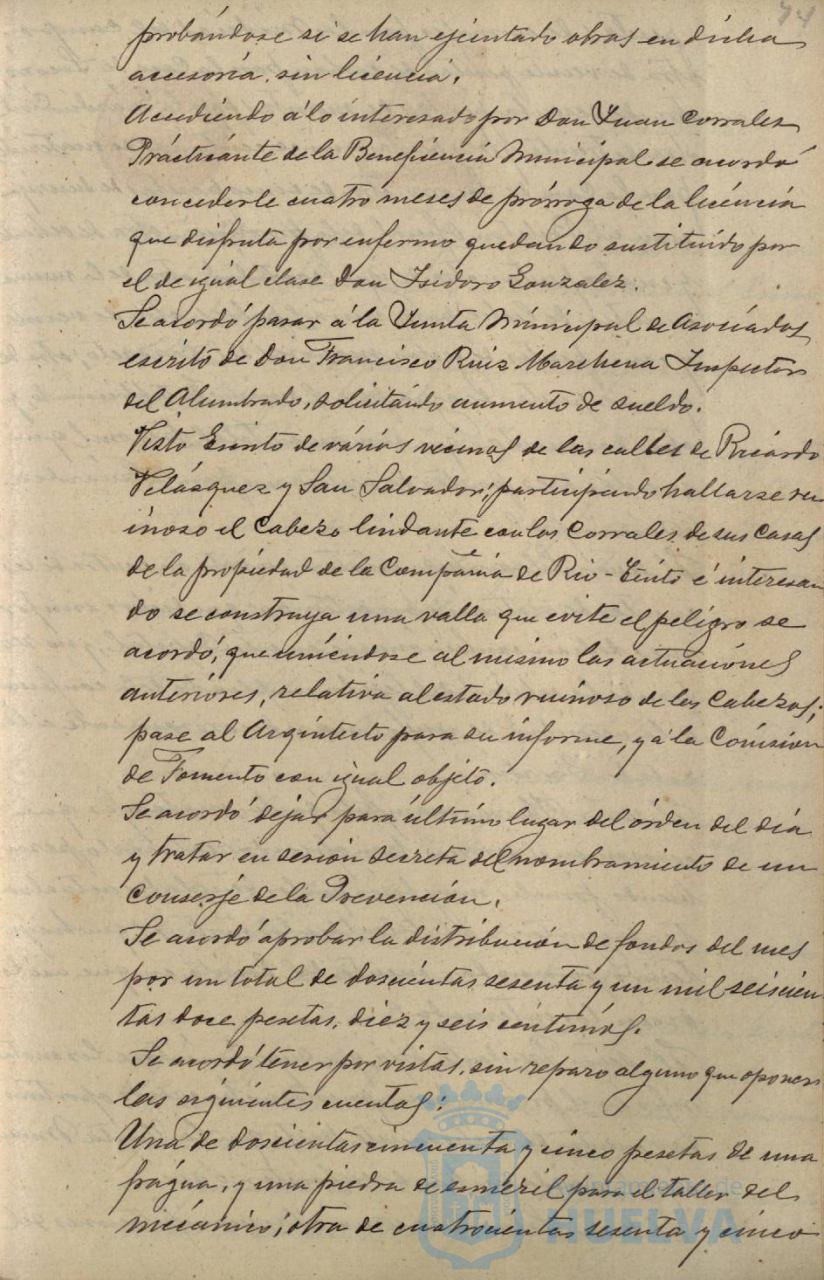 74
probándose si se han ejecutado obras en dicha
accesoria, sin licencia.
Accediendo á lo interesado por Don Juan Corrales
Practicante de la Beneficencia Municipal se acordó
concederle cuatro meses de prórroga de la licencia
que disfruta por enfermo quedando sustituido por
el de igual clase Don Isidoro Gonzalez.
Se acordó pasar á la Junta Municipal de Asociados
escrito de Don Francisco Ruiz Marchena Inspector
del Alumbrado, solicitando aumento de sueldo.
Visto Escrito de varios vecinos de las calles de Ricardo
Velásquez y San Salvador, participando hallarse ru-
inoso el Cabezo lindante con los Corrales de sus Casas
de la propiedad de la Compañia de Rio-Tinto é interesan
do se construya una valla que evite el peligro se
acordó, que uniéndose al mismo las actuaciones
anteriores, relativa al estado ruinoso de los Cabezos,
pase al Arquitecto para su informe, y á la Comision
de Fomento con igual objeto.
Se acordó dejar para último lugar del órden del día
y tratar en sesion secreta del nombramiento de un
Conserje de la Prevención.
Se acordó aprobar la distribución de fondos del mes
por un total de doscientas sesenta y un mil seiscien
tas doce pesetas, diez y seis céntimos.
Se acordó tener por vistas, sin reparo alguno que oponer
las siguientes cuentas:
Una de doscientas cincuenta y cinco pesetas de una
frágua, y una piedra de esmeril para el taller del
mecánico; otra de cuatrocientas sesenta y cinco
Ayuntamiento de
HUELVA